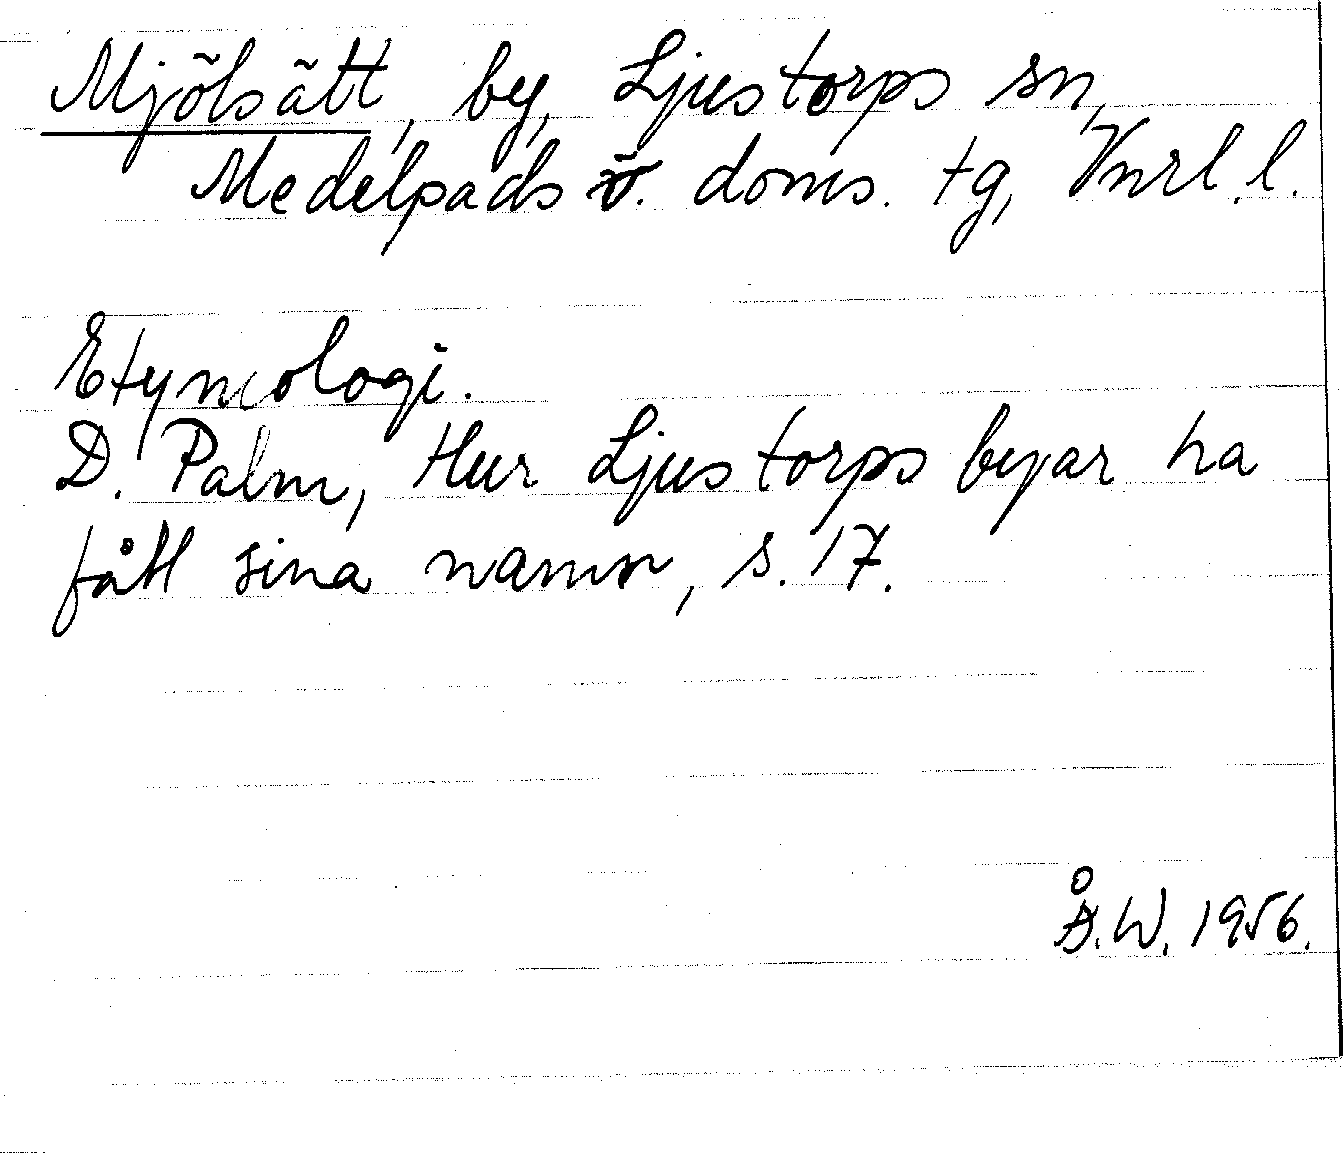 Mjölsätt, by, Ljustorps sn,
Medelpads v. doms. tg, Vnrl. l.
Etymologi.
D. Palm, Hur Ljustorps byar ha
fått sina namn, s. 17.
Å.W. 1956.